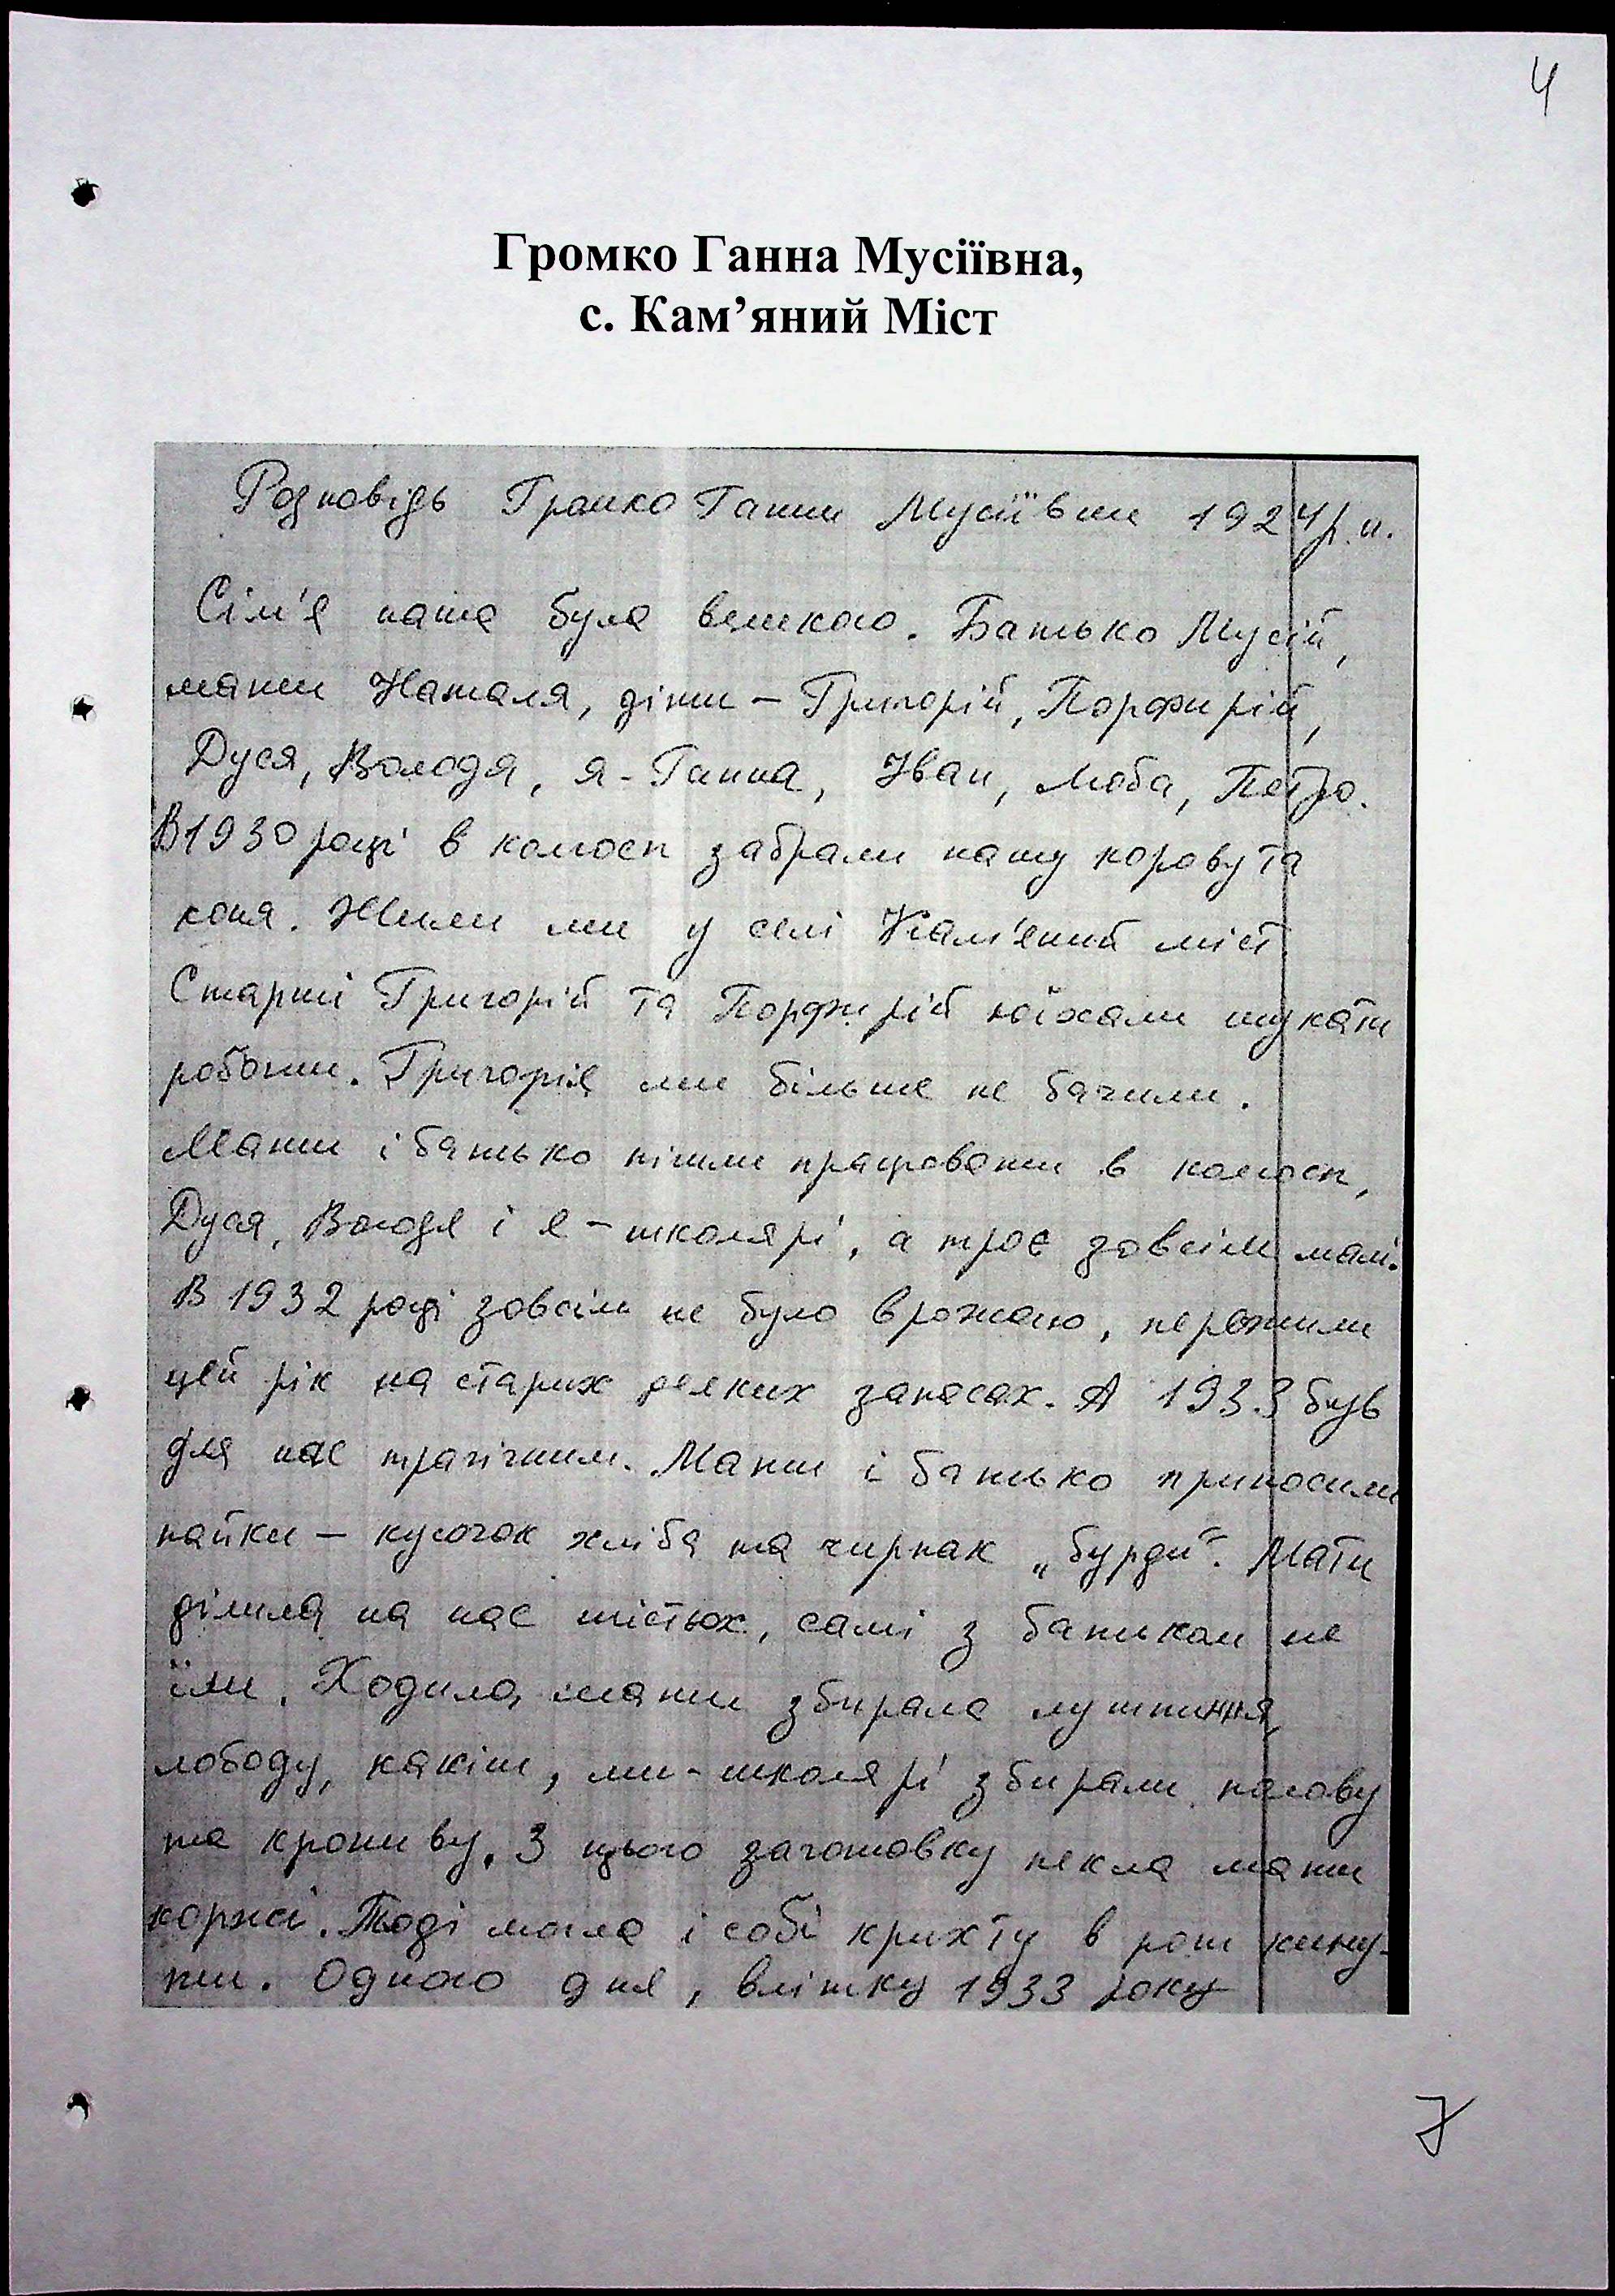 4
Громко Ганна Мусіївна,
с. Кам’яний Міст
Розповідь Громко Ганни Мусіївни 1924 р.н.
Сім'я наша була великою. Батько Мусій,
мати Наталя, діти – Григорій, Порфирій,
Дуся, Володя, я - Ганна, Іван, Люба, Петро.
В 1930 році в колгосп забрали нашу корову та
коня. Жили ми у селі Кам'яний міст.
Старші Григорій та Порфирій поїхали шукати
роботи. Григорія ми більше не бачили.
Мати і батько пішли працювати в колгосп,
Дуся, Володя і я – школярі, а троє зовсім малі.
В 1932 році зовсім не було врожаю, пережили
цей рік на старих деяких запасах. А 1933 був
для нас трагічним. Мати і батько приносили
пайки – кусочок хліба та чирпак „бурди“. Мати
ділила на нас шістьох, самі з батьком не
їли. Ходила мати збирала лушпиння,
лободу, качіш, ми - школярі збирали полову
та кропиву. З цього заготовку пекла мати
коржі. Тоді могла і собі крихту в рот кину-
ти. Одного дня, влітку 1933 року
7